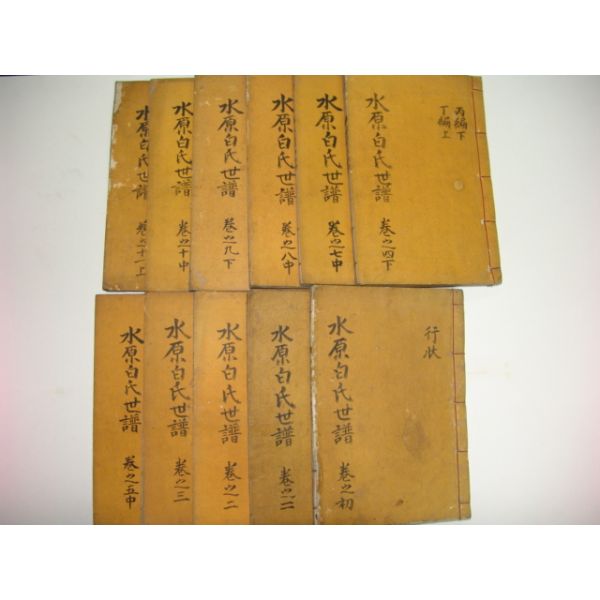 丙編下
丁編上
水原白氏世譜 卷之四下
水原白氏世譜 卷之七中
水原白氏世譜 卷之八中
水原白氏世譜 卷之九下
水原白氏世譜 卷之十中
水原白氏世譜 卷之十一上
行狀
水原白氏世譜 卷之初
水原白氏世譜 卷之二
水原白氏世譜 卷之二
水原白氏世譜 卷之三
水原白氏世譜 卷之五中